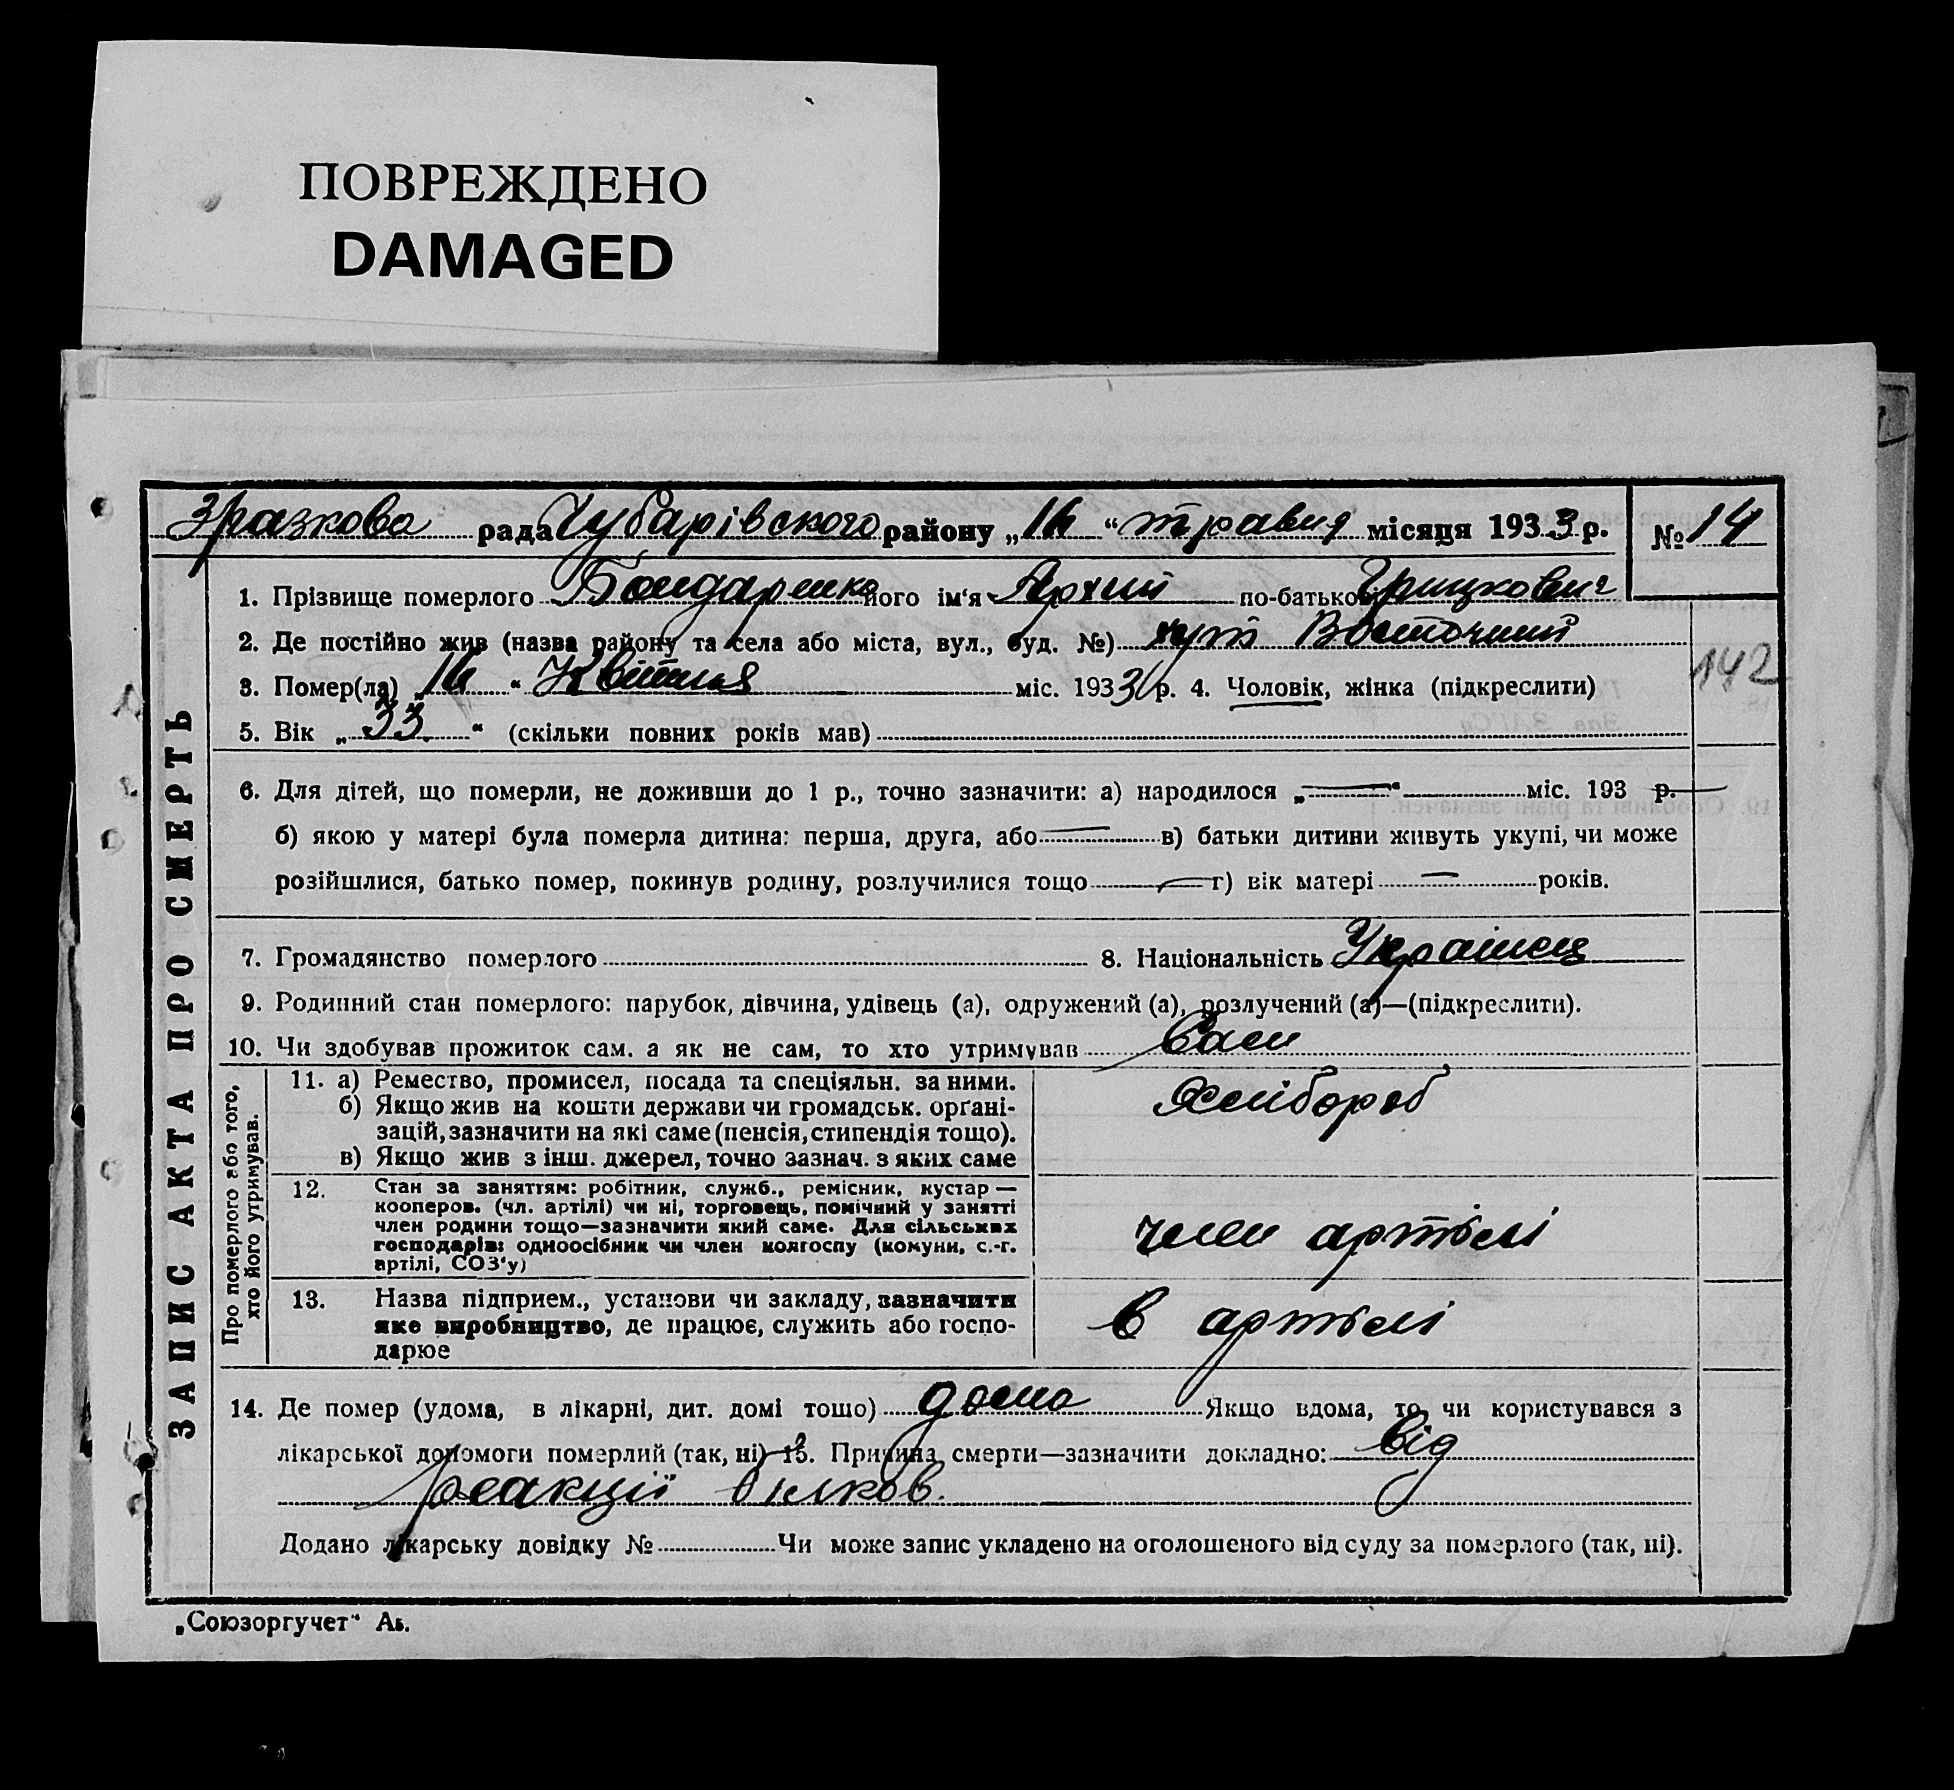 ПОВРЕЖДЕНО
DAMAGED
Зразкова рада Чубарівского району „16“ травня місяця 1933 р. № 14
ЗАПИС АКТА ПРО СМЕРТЬ
1. Прізвище померлого Бондаренко його ім‘я Архип по-батькові Грицкович
2. Де постійно жив (назва району та села або міста, вул., буд. №) хут Восточний
3. Помер(ла) „16“ Квітня міс. 1933 р. 4. Чоловік, жінка (підкреслити)
142
5. Вік „33“ (скільки повних років мав)
6. Для дітей, що померли, не доживши до 1 р., точно зазначити: а) народилося „—“ міс. 193 р.
б) якою у матері була померла дитина: перша, друга, або — в) батьки дитини живуть укупі, чи може
розійшлися, батько помер, покинув родину, розлучилися тощо — г) вік матері — років.
7. Громадянство померлого 8. Національність Українец
9. Родинний стан померлого: парубок, дівчина, удівець (а), одружений (а), розлучений (а)—(підкреслити).
10. Чи здобував прожиток сам. а як не сам, то хто утримував Сам
Про померлого або того,
хто його утримував.
11. а) Ремество, промисел, посада та спеціяльн. за ними. Хлібороб
б) Якщо жив на кошти держави чи громадськ. органі-
зацій, зазначити на які саме (пенсія, стипендія тощо).
в) Якщо жив з інш. джерел, точно зазнач. з яких саме
12. Стан за заняттям: робітник, служб., ремісник, кустар —
кооперов. (чл. артілі) чи ні, торговець, помічний у занятті
член родини тощо—зазначити який саме. Для сільських член артілі
господарів: одноосібник чи член колгоспу (комуни, с.-г.
артілі, СОЗ‘у)
13. Назва підприєм., установи чи закладу, зазначити
яке виробництво, де працює, служить або госпо- в артілі
дарює
14. Де помер (удома, в лікарні, дит. домі тощо) дома Якщо вдома, то чи користувався з
лікарської допомоги померлий (так, ні) 15. Причина смерти—зазначити докладно: від
реакції
Додано лікарську довідку № Чи може запис укладено на оголошеного від суду за померлого (так, ні).
„Союзоргучет“ Аь.